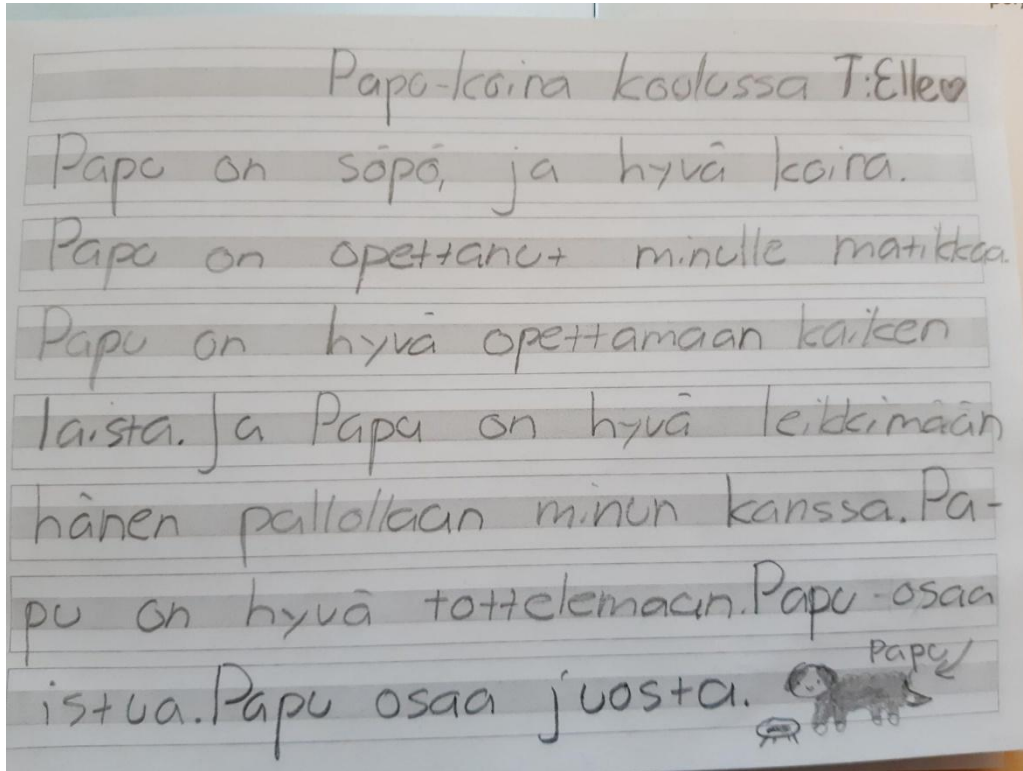 Papu-koira koulussa T:Elle♥
Papu on söpö, ja hyvä koira.
Papu on opettanut minulle matikkaa.
Papu on hyvä opettamaan kaiken
laista. Ja Papu on hyvä leikkimään
hänen pallollaan minun kanssa. Pa-
pu on hyvä tottelemaan. Papu osaa
istua. Papu osaa juosta.
Papu